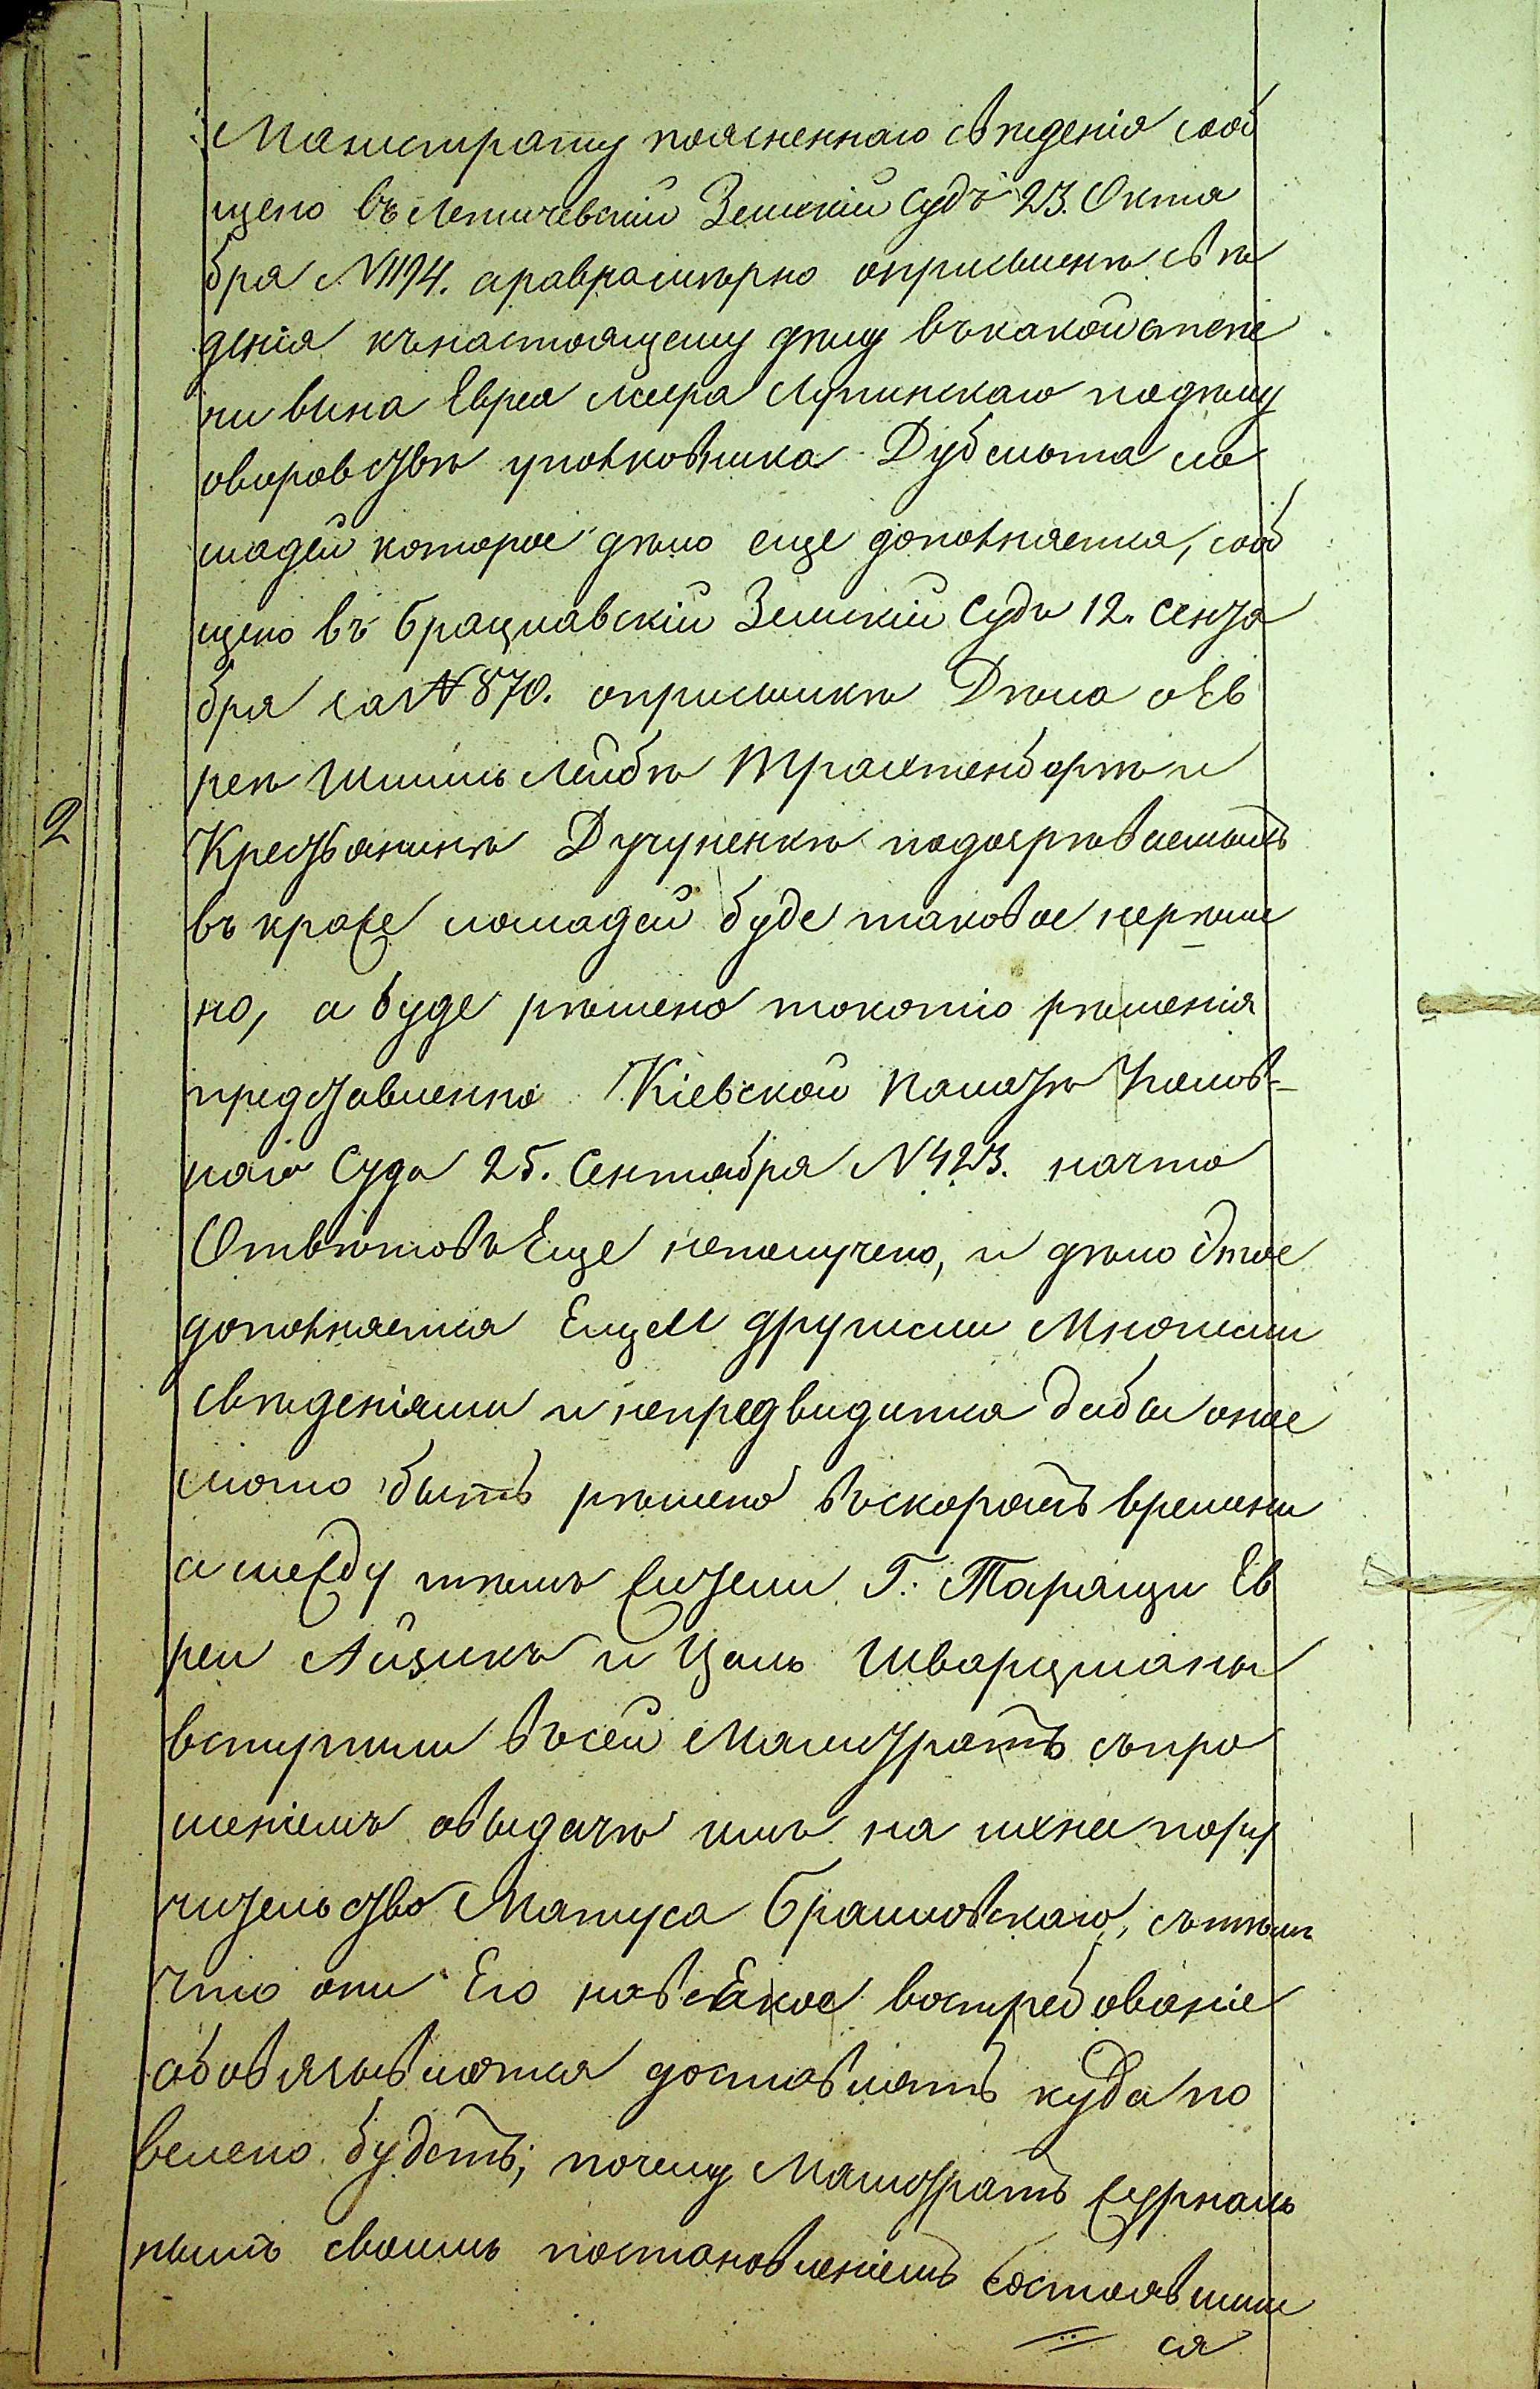 Магистрату поясненнаго сведенія сооб
щено въ Летичевскій Земскій судъ 23. Октя
бря №1194. аравномѣрно оприсылкѣ свѣ
денія кънастоящему делу въкакой степе
ни вина Еврея Меера Лупинскаго поделу
оворовствѣ уполковника Дубельта ло
шадей которое дѣло еще дополняется, сооб
щено въ Брацлавскій Земскій Судъ 12. сентя
бря за №870. оприсылкѣ Дѣла о Ев
реѣ Лейбѣ Трахтенбергѣ и
Крестьянинѣ подозрѣваемыхъ
въ краже лошадей буде таковое нерѣше
но, а буде рѣшено токопіи рѣшенія
представленно Кіевской Палатѣ Уголов-
наго Суда 25. Сентября №423. начто
Отвѣтовъ Еще неполучено, и дѣло Этое
дополняется Еще и другими Многими
сведеніями и непредвидится дабы оное
могло быть рѣшено въскоромъ времени
а между тѣмъ Жители Г: Таращи Ев
реи Айзикъ и Цаль Шварцманы
вступили въсей Магистратъ съпро
шеніемъ овыдачѣ имъ на ихнее пору
чительство Матуса Браиловскаго, сътѣмъ
что они Его навсякое востребованіе
обовязываются доставлять куда по
велено будетъ; почему Магистратъ Журналь
нымъ своимъ постановленіемъ состоявшим
ся
2